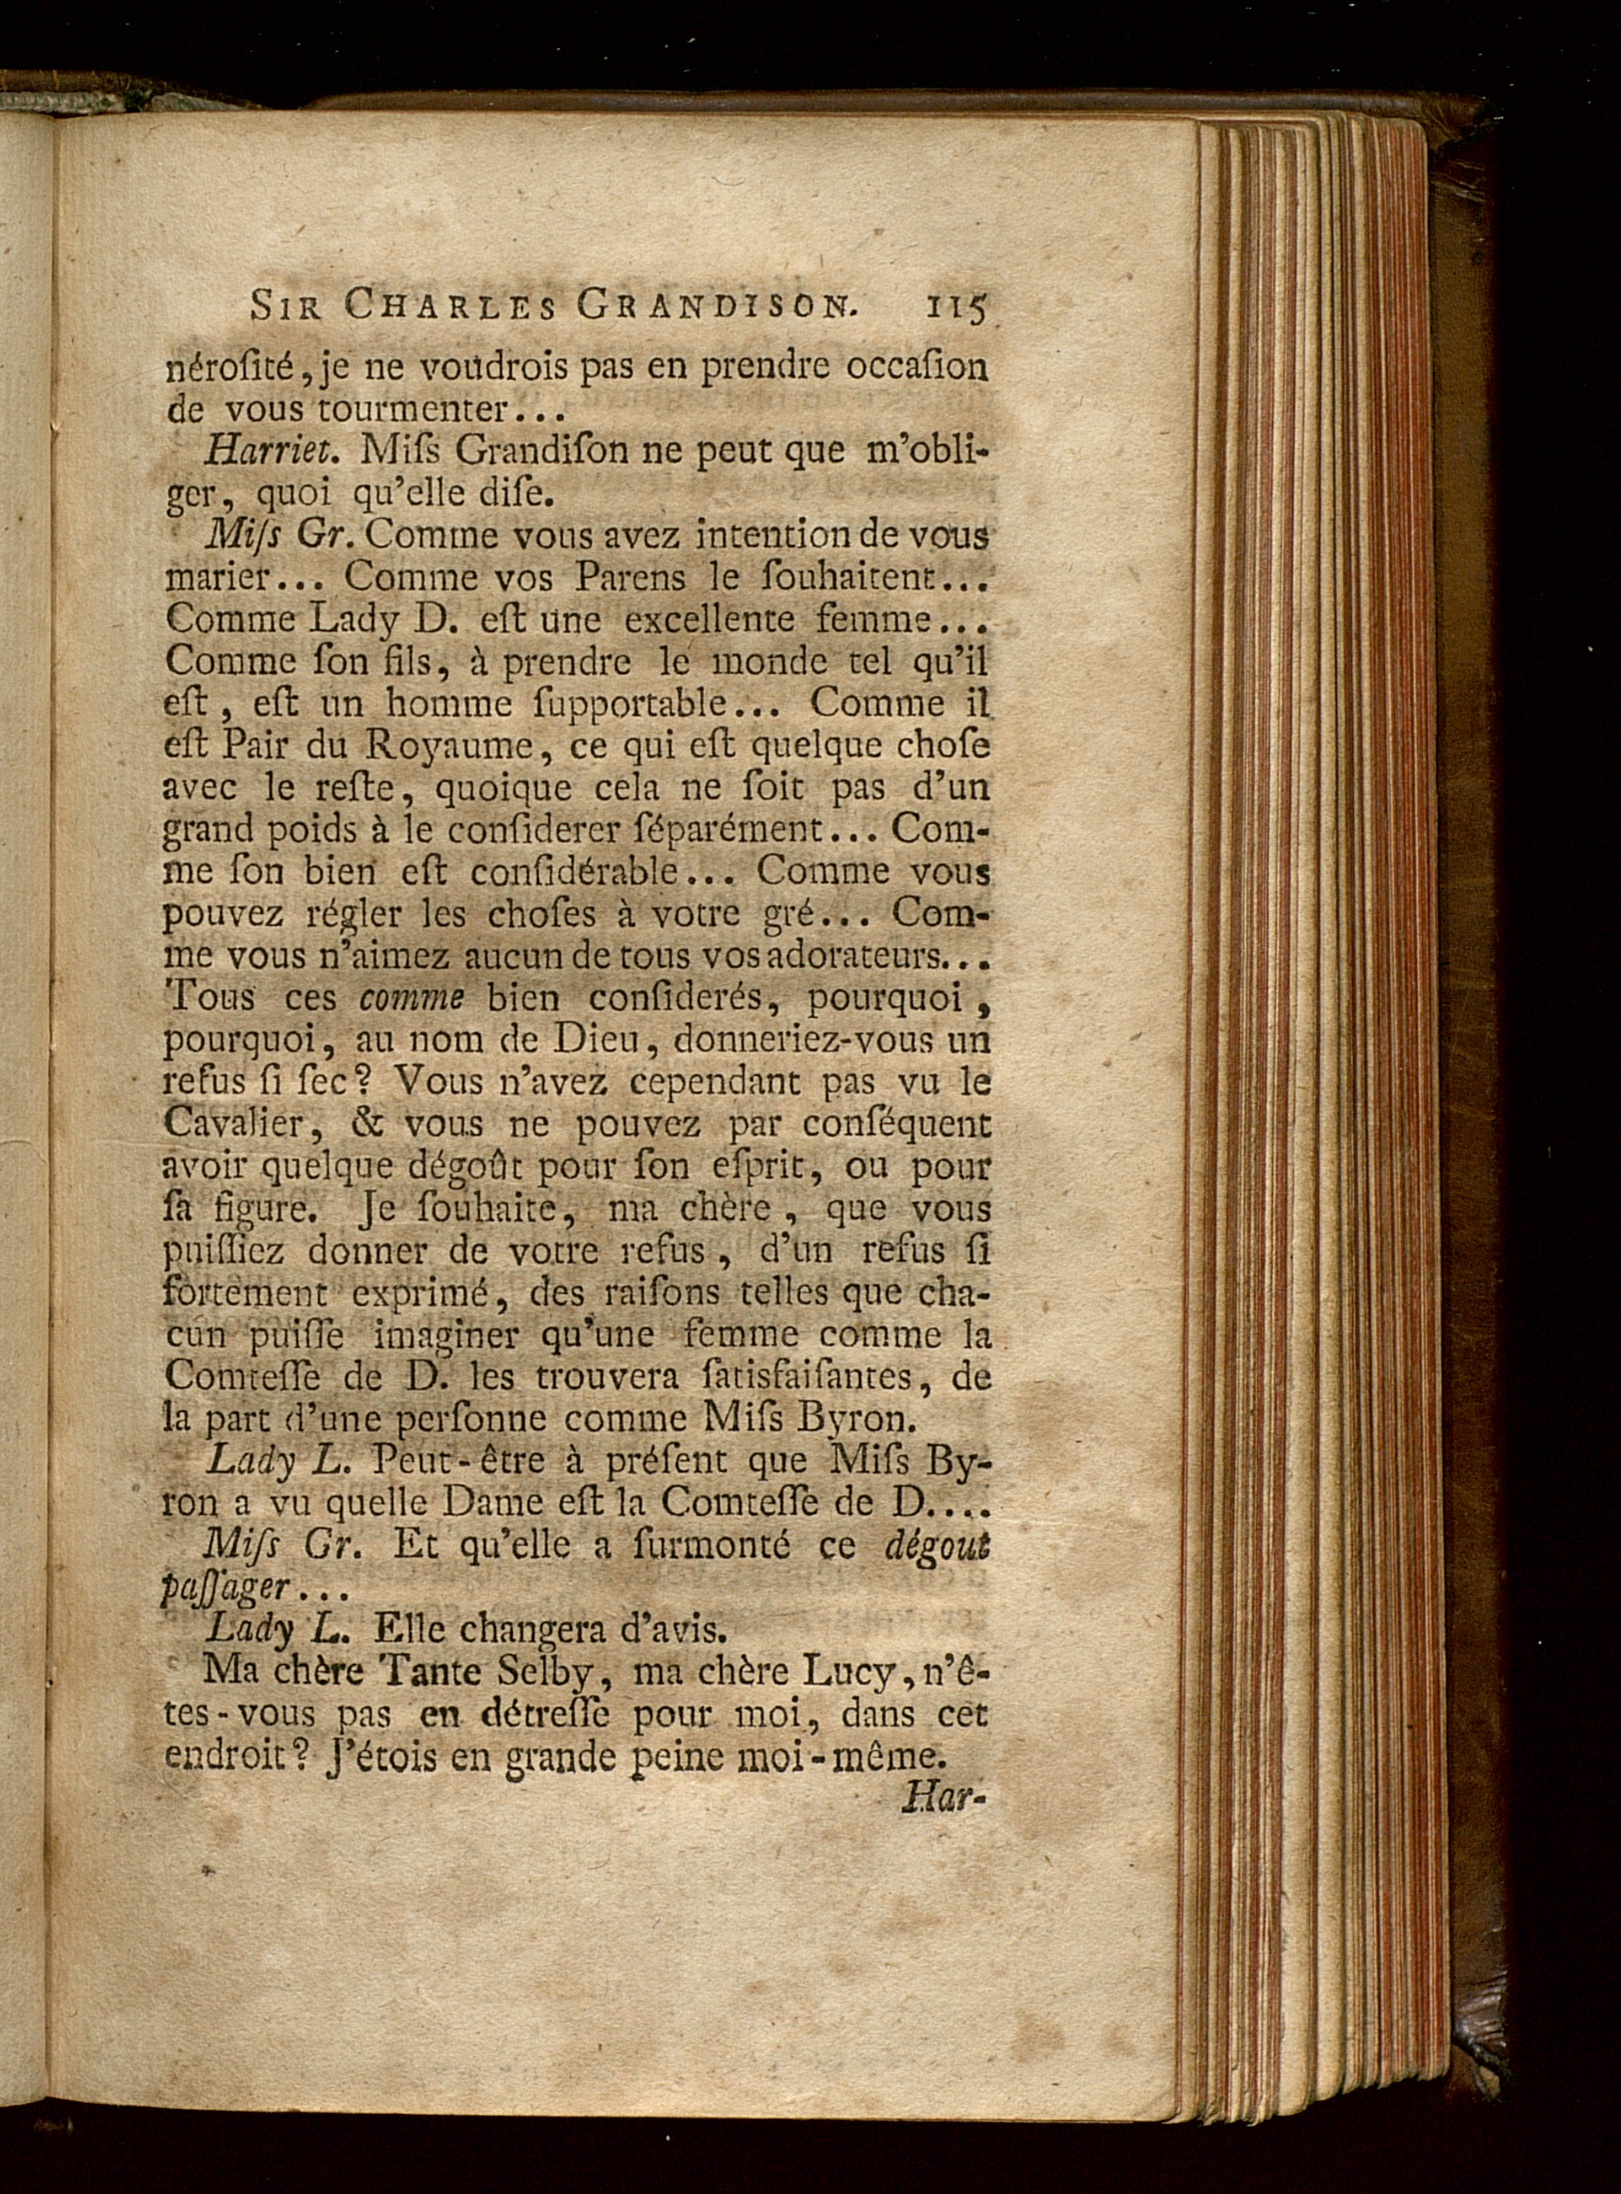 SIR CHARLES GRANDISON. 115
néroſité, je ne voudrois pas en prendre occaſion
de vous tourmenter...
Harriet. Miſs Grandiſon ne peut que m'obli-
ger, quoi qu'elle diſe.
Miſs Gr. Comme vous avez intention de vous
marier... Comme vos Parens le ſouhaitent...
Comme Lady D. eſt une excellente femme...
Comme ſon fils, à prendre le monde tel qu'il
eſt, eſt un homme ſupportable... Comme il
eſt Pair du Royaume, ce qui eſt quelque choſe
avec le reſte, quoique cela ne ſoit pas d'un
grand poids à le conſiderer ſéparément... Com-
me ſon bien eſt conſidérable... Comme vous
pouvez régler les choſes à votre gré... Com-
me vous n'aimez aucun de tous vos adorateurs...
Tous ces comme bien conſiderés, pourquoi,
pourquoi, au nom de Dieu, donneriez-vous un
refus ſi ſec? Vous n'avez cependant pas vu le
Cavalier, & vous ne pouvez par conſéquent
avoir quelque dégoût pour ſon eſprit, ou pour
ſa figure. Je ſouhaite, ma chère, que vous
puiſſiez donner de votre refus, d'un refus ſi
fortement exprimé, des raiſons telles que cha-
cun puiſſe imaginer qu'une femme comme la
Comteſſe de D. les trouvera ſatisfaiſantes, de
la part d'une perſonne comme Miſs Byron.
Lady L. Peut-être à préſent que Miſs By-
ron a vu quelle Dame eſt la Comteſſe de D....
Miſs Gr. Et qu'elle a ſurmonté ce dégout
paſſager...
Lady L. Elle changera d'avis.
Ma chère Tante Selby, ma chère Lucy, n'ê-
tes-vous pas en détreſſe pour moi, dans cet
endroit? J'étois en grande peine moi-même.
Har-